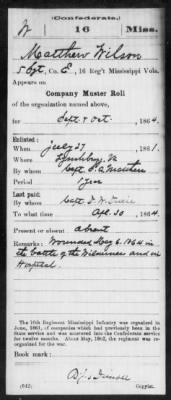 (Confederate.)
W 16 Miss.
Matthew Wilson
5 Sgt, Co. C, 16 Reg't Mississippi Vols.
Appears on
Company Muster Roll
of the organization named above,
for Sept & Oct, 1864.
Enlisted:
When July 27, 1861.
Where
By whom Capt.
Period 1 Year
Last paid:
By whom Capt.
To what time Apl. 30, 1864.
Present or absent absent
Remarks: Wounded May 6, 1864 in
the battle of the Wilderness and in
Hospital.
The 16th Regiment Mississippi Infantry was organized in
June, 1861, of companies which had previously been in the
State service and was mustered into the Confederate service
for twelve months. About May, 1862, the regiment was re-
organized for the war.
Book mark:
(642)
Copyist.